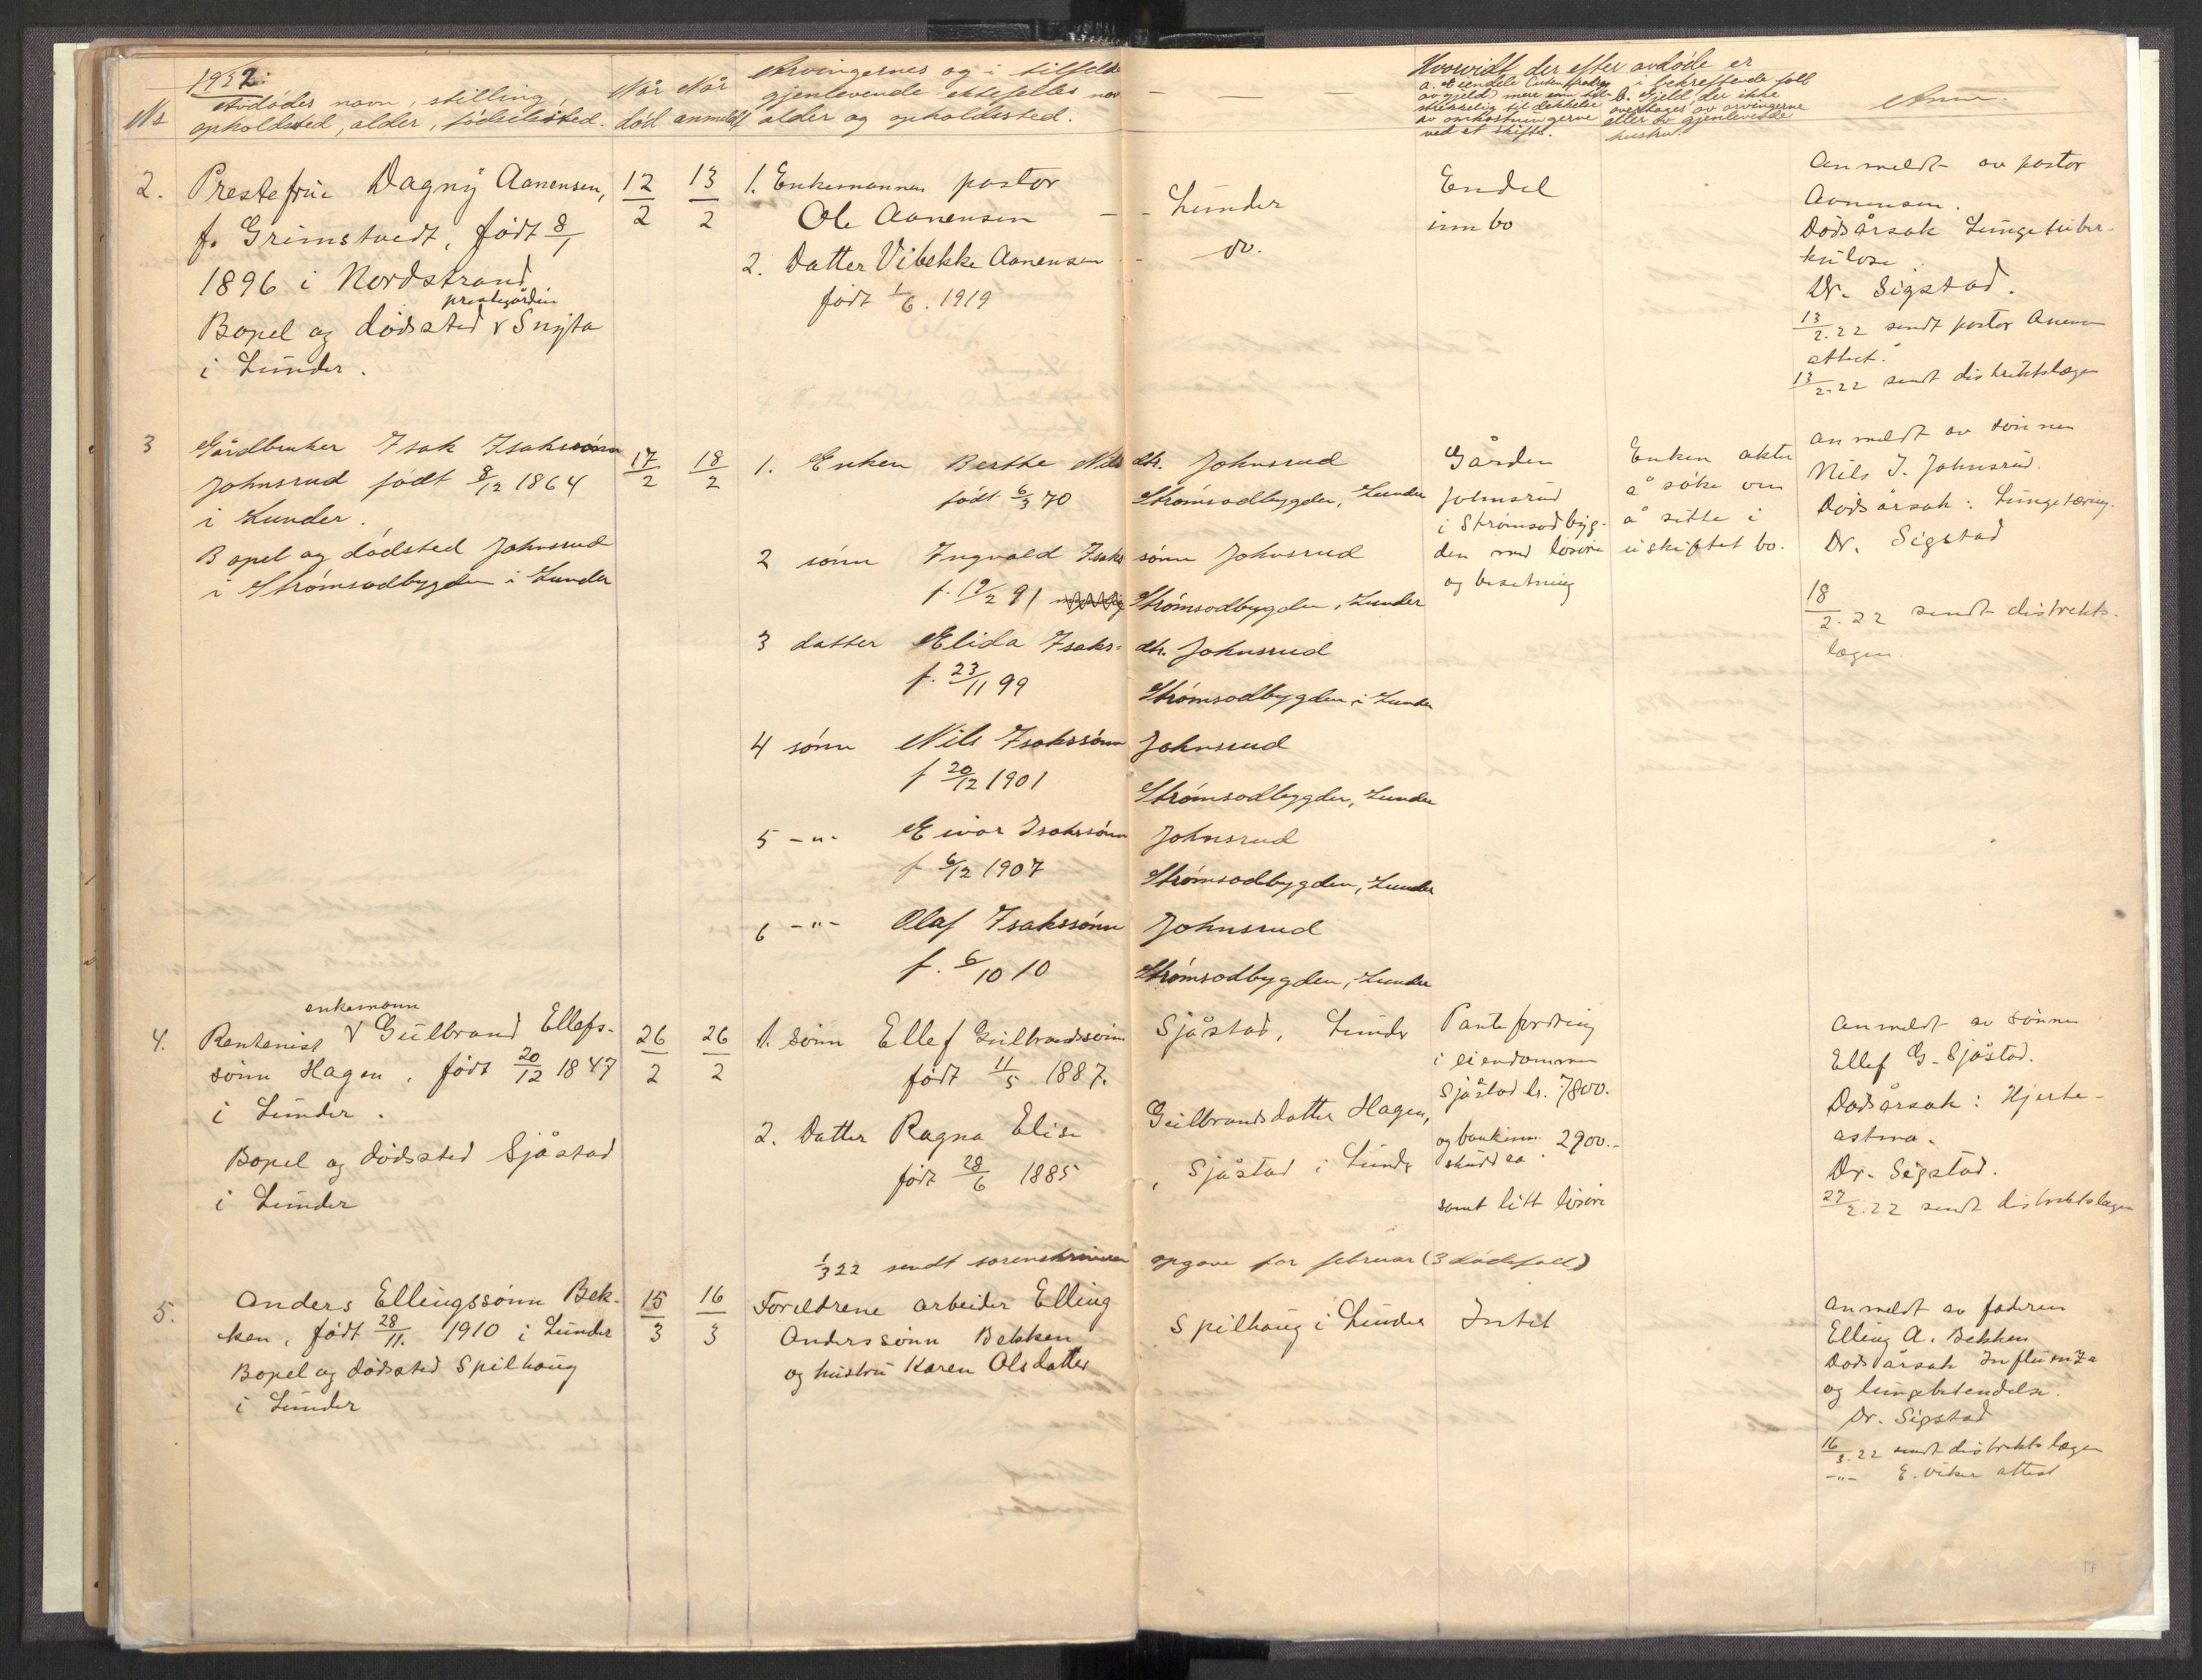 1922.
No
Avdødes navn, stilling,
opholdssted, alder, fødselssted.
Når
død
Når
anmeldt
Arvingernes og i tilfelde
gjenlevende ektefelles navn
alder og opholdssted.
Hvorvidt der efter avdøde er
a. Eiendele (uten fradrag
av gjeld) mere enn til-
strekkelig til dækkelse
av omkostningerne
ved et skifte.
i bekreftende fall
b. Gjeld, der ikke
overtages av arvingerne
eller av gjenlevende
hustru.
Anm.
2. Prestefrue Dagny Aanensen,
f. Grimstvedt, født 8/1
1896 i Nordstrand
prestegården
Bopel og dødssted v Snyta
i Lunder.
12/2
13/2
1. Enkemannen pastor
Ole Aanensen - - Lunder
2. Datter Vibekke Aanensen - do.
født 1/6. 1919
Endel
innbo
Anmeldt av pastor
Aanensen.
Dødsårsak Lungetuber-
kulose
Dr. Sigstad.
13/2.22 sendt pastor Aanensen
attest.
13/2.22 sendt distriktslægen
3 Gårdbruker Isak Isakssønn
Johnsrud født 8/12 1864
i Lunder.
Bopel og dødsted Johnsrud
i Strømsodbygden i Lunder
17/2
18/2
1. Enken Berthe Nilsdtr. Johnsrud
født 6/3 70 Strømsodbygden, Lunder
2 sønn Ingvald Isakssønn Johnsrud
f. 19/2 91 Strømsodbygden, Lunder
3 datter Elida Isaks- dtr. Johnsrud
f. 23/11 99 Strømsodbygden i Lunder
4 sønn Nils Isakssønn Johnsrud
f 20/12 1901 Strømsodbygden, Lunder
5 -"- Eivar Isakssønn Johnsrud
f 6/12 1907 Strømsodbygden, Lunder
6 -"- Olaf Isakssønn Johnsrud
f. 6/10 10 Strømsodbygden, Lunder
Gården
Johnsrud
i Strømsodbyg-
den med løsøre
og besetning
Enken akter
å søke om
å sitte i
uskiftet bo.
Anmeldt av sønnen
Nils I. Johnsrud.
Dødsårsak: Lungetæring.
Dr. Sigstad
18/2.22 sendt distrikts-
lægen.
enkemann
4. Rentenist v Gulbrand Ellefs-
sønn Hagen, født 20/12 1847
i Lunder.
Bopel og dødssted Sjåstad
i Lunder
26/2
26/2
1. Sønn Ellef Gulbrandssønn Sjåstad, Lunder
født 11/5 1887.
2. Datter Ragna Elise Gulbrandsdatter Hagen,
født 28/6 1885, Sjåstad i Lunder
Pantefordring
i eiendommen
Sjåstad kr. 7800.
og bankinn-
skudd ca. 2900.-
samt litt løsøre
Anmeldt av sønnen
Ellef G. Sjåstad.
Dødsårsak: Hjerte-
astma.
Dr. Sigstad.
27/2.22 sendt distriktslægen
1/3 22 sendt sorenskriveren opgave for februar (3 dødsfall)
5. Anders Ellingssønn Bek-
ken, født 28/11. 1910 i Lunder
Bopel og dødssted Spilhaug
i Lunder
15/3
16/3
Foreldrene arbeider Elling
Anderssønn Bekken
og hustru Karen Olsdatter
Spilhaug i Lunder
Intet
Anmeldt av faderen
Elling A. Bekken
Dødsårsak Influenza
og lungebetendelse.
Dr. Sigstad
16/3.22 sendt distriktslægen
-"- E. Viker attest